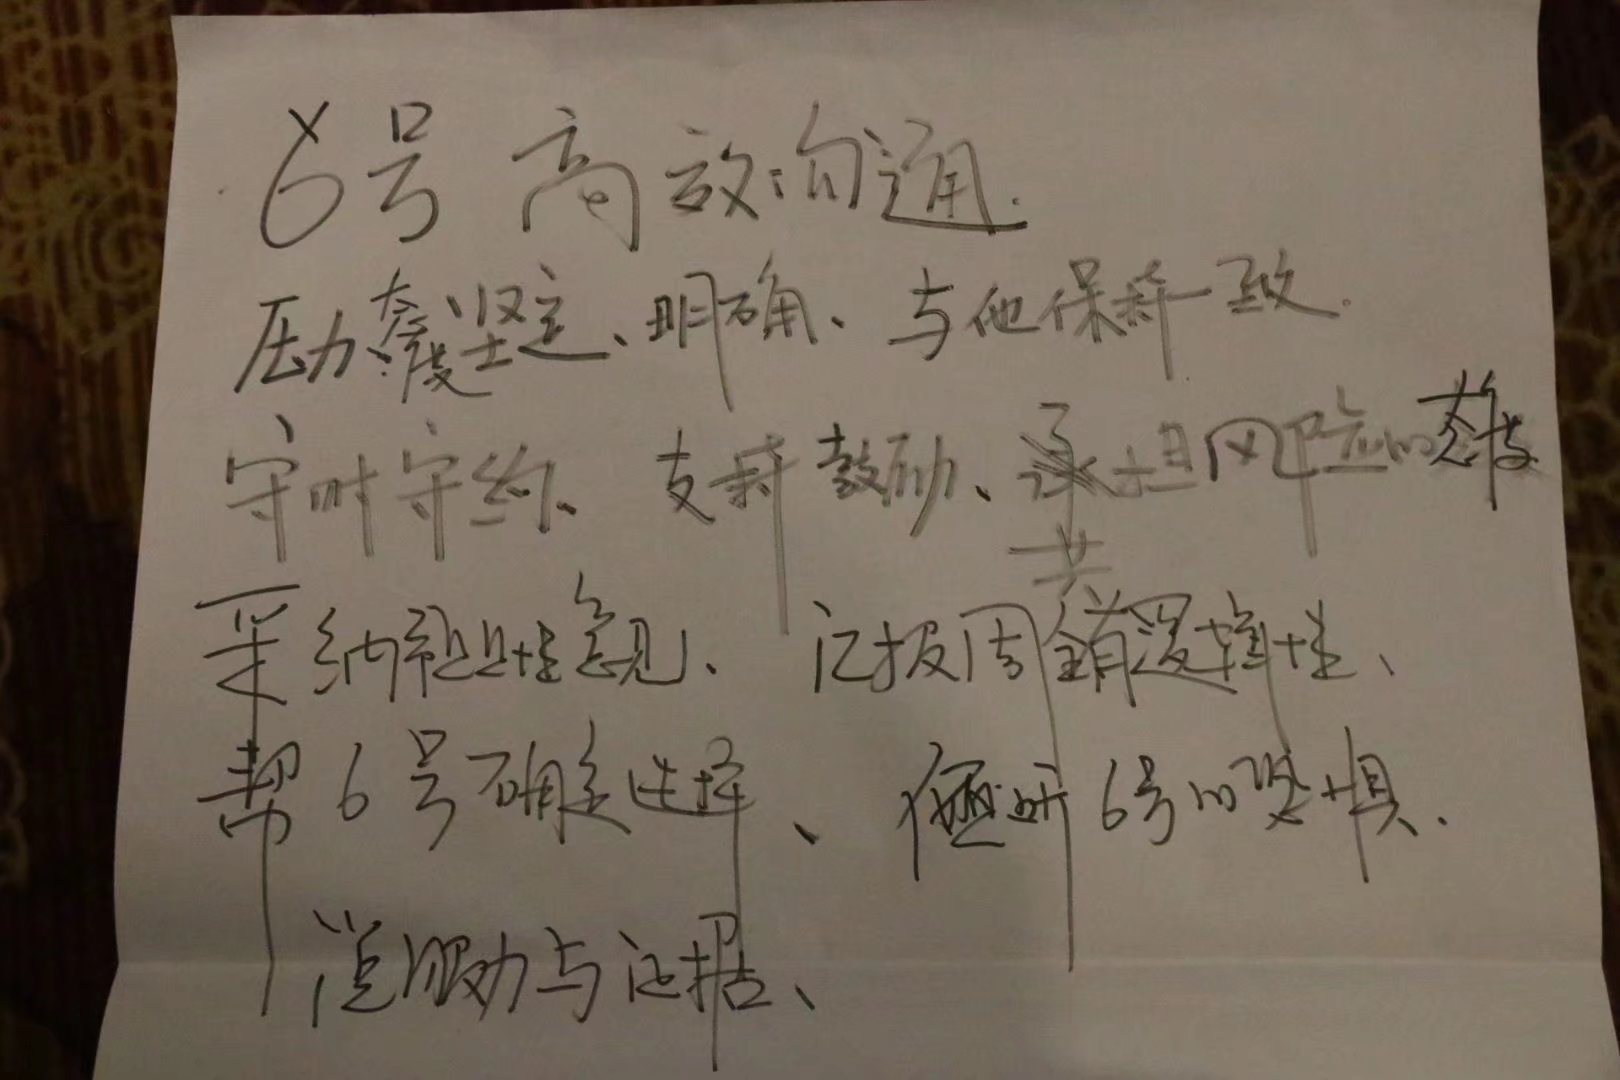 6号 高效沟通.
压力态度坚定、明确、与他保持一致.
守时守约、支持鼓励、共担风险的态度
采纳 性意见、 汇报周 逻辑性、
帮6号确定选择、 6号的恐惧.
说服力与证据、